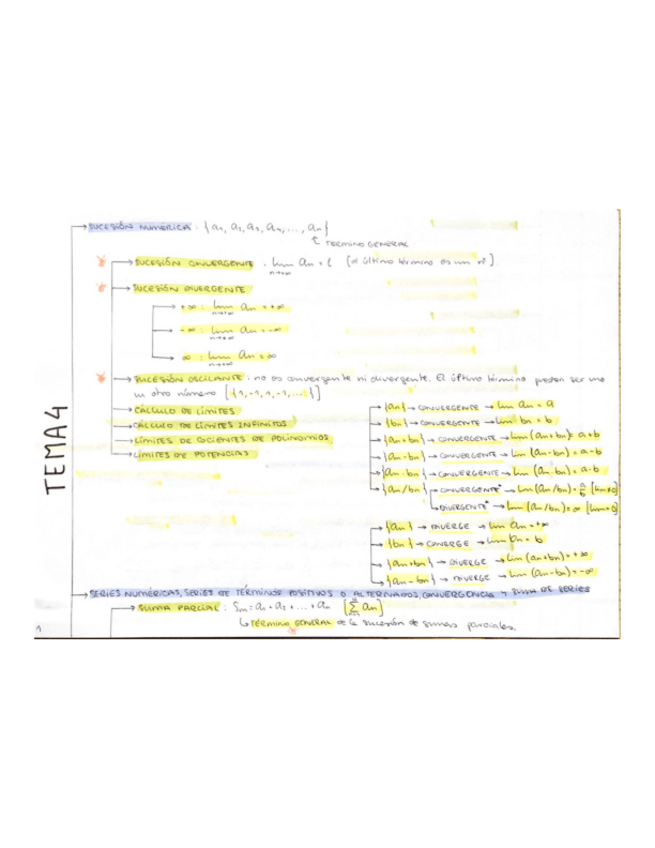 TEMA 4
→ SUCESIÓN NUMÉRICA : {a₁, a₂, a₃, a₄, ..., aₙ}
↑ TERMINO GENERAL
→ SUCESIÓN CONVERGENTE : lim aₙ = l (el último término es un nº).
n→∞
→ SUCESIÓN DIVERGENTE
→ +∞ : lim aₙ = +∞
n→+∞
→ -∞ : lim aₙ = -∞
n→+∞
→ ∞ : lim aₙ = ∞
n→+∞
→ SUCESIÓN OSCILANTE : no es convergente ni divergente. El último término pueden ser uno
u otro número [{1, -1, 1, -1, ...}]
→ CÁLCULO DE LÍMITES
→ CÁLCULO DE LÍMITES INFINITOS
→ LÍMITES DE COCIENTES DE POLINOMIOS
→ LÍMITES DE POTENCIAS
→ {aₙ} → CONVERGENTE → lim aₙ = a
→ {bₙ} → CONVERGENTE → lim bₙ = b
→ {aₙ+bₙ} → CONVERGENTE → lim (aₙ+bₙ) = a+b
→ {aₙ-bₙ} → CONVERGENTE → lim (aₙ-bₙ) = a-b
→ {aₙ·bₙ} → CONVERGENTE → lim (aₙ·bₙ) = a·b
→ {aₙ/bₙ} → CONVERGENTE* → lim (aₙ/bₙ) = a/b [lim≠0]
→ DIVERGENTE* → lim (aₙ/bₙ) = ∞ [lim=0]
→ {aₙ} → DIVERGE → lim aₙ = +∞
→ {bₙ} → CONVERGE → lim bₙ = b
→ {aₙ+bₙ} → DIVERGE → lim (aₙ+bₙ) = +∞
→ {aₙ-bₙ} → DIVERGE → lim (aₙ-bₙ) = -∞
→ SERIES NUMÉRICAS, SERIES DE TÉRMINOS POSITIVOS O ALTERNADOS, CONVERGENCIA Y SUMA DE SERIES
→ SUMA PARCIAL : Sₙ = a₁ + a₂ + ... + aₙ [∑ aₙ]
↳ TÉRMINO GENERAL de la sucesión de sumas parciales.
1